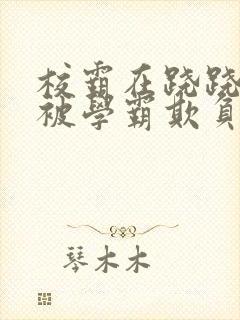 校霸在跷跷
被學霸欺負
琴木木